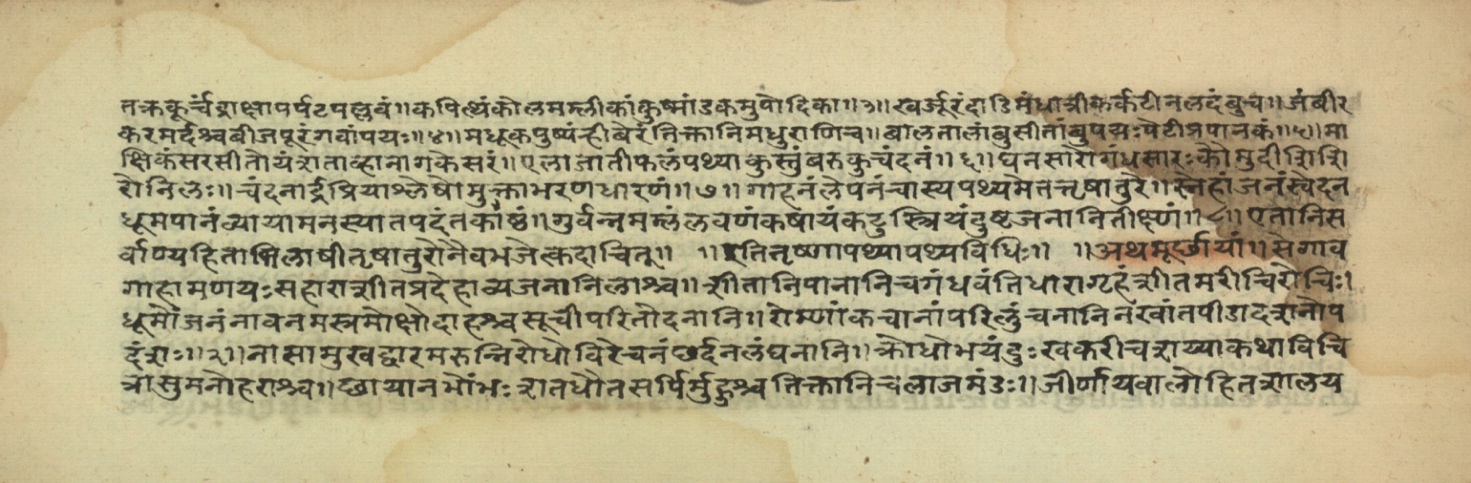 तक्रकूर्चद्राक्षापर्पटपल्लवं॥कपित्थंकोलमम्लीकांकुष्मांडकमुपोदिका॥३॥खर्जूरंदाडिमंधात्रीकर्कटीनलदंबुच॥जंबीर
करमर्दश्चबीजपूरंगवांपयः॥४॥मधूकपुष्पंह्रीबेरंतिक्तानिमधुराणिच॥बालतालांबुसीतांबुपयःपेटीप्रपानकं॥५॥मा
क्षिकंसरसीतोयंशताव्हानागकेसरं॥एलाजातीफलंपथ्याकुस्तुंबरुकुचंदनं॥६॥घनसारोगंधसारःकौमुदीशिशि
रोनिलः॥चंदनार्द्रप्रियाश्लेषामुक्ताभरणधारणं॥७॥गाहनंलेपनंचास्यपथ्यमेतत्तृषातुरे॥स्नेहांजनंस्वेदन
धूमपानंव्यायामनस्यातपदंतकाष्ठं॥गुर्वन्नमम्लंलवणंकषायंकटुस्त्रियंदुष्टजनानितीक्ष्णं॥८॥एतानिस
र्वाण्यहिताभिलाषीतृषातुरोनैवभजेत्कदाचित्॥ ॥इतितृष्णापथ्यापथ्यविधिः॥ ॥अथमूर्छायां॥सेगाव
गाहामणयःसहाराशीतप्रदेहाव्यजनानिलाश्च॥शीतानिपानानिचगंधवंतिधारागृहंशीतमरीचिरोचिः।
धूमोंजनंनावनमस्त्रमोक्षोदाहश्चसूचीपरितोदनानि॥रोम्णांकचानांपरिलुंचनानिनखांतपीडादशनोप
दंशः॥२॥नासामुखद्वारमरुन्निरोधोविरेचनंछर्दनलंघनानि॥क्रोधोभयंदुःखकरीचशय्याकथाविचि
त्रासुमनोहराश्च॥छायानभोंभःशतधौतसर्पिर्मृदुश्चतिक्तानिचलाजमंडः॥जीर्णायवालोहितशालय